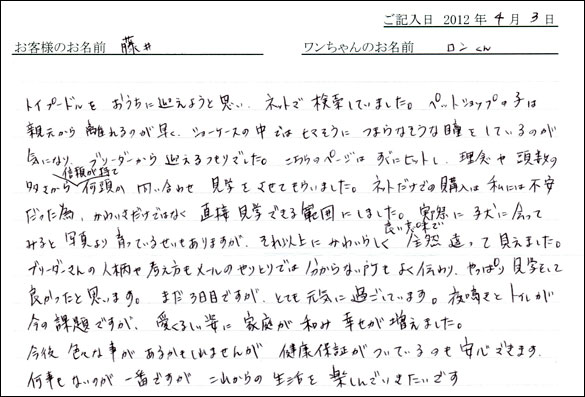 ご記入日 2012 年 4 月 3 日
お客様のお名前 藤井 ワンちゃんのお名前 ロンくん
トイプードルを おうちに迎えようと思い、ネットで検索していました。ペットショップの子は
親元から離れるのが早く、ショーケースの中ではヒマそうに つまらなそうな瞳をしているのが
気になり、ブリーダーから迎えるつもりでした。こちらのページは すぐにヒットし、理念や頭数の
信頼が持て
多さから 何頭か問い合わせ 見学をさせてもらいました。ネットだけでの購入は私には不安
だった為、かわいさだけではなく 直接見学できる範囲にしました。実際に子犬に会って
良い意味で
みると写真より育っているせいもありますが、それ以上にかわいらしく 全然違って見えました。
ブリーダーさんの人柄や考え方もメールのやりとりでは分からない所もよく伝わり、やっぱり見学をして
良かったと思います。まだ3日目ですが、とても元気に過ごしています。夜鳴きとトイレが
今の課題ですが、愛くるしい姿に 家庭が和み 幸せが増えました。
今後 色々な事があるかもしれませんが 健康保証がついているのも安心できます。
何事もないのが一番ですが これからの生活を楽しんでいきたいです